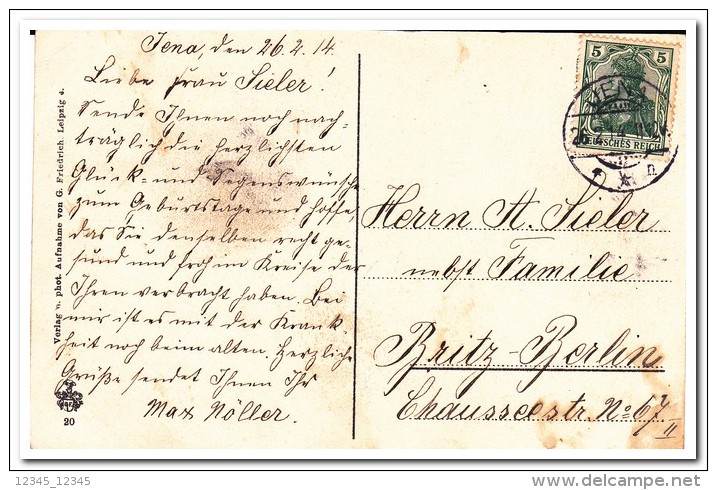 Jena, den 26.2.14.
Liebe Frau Sieler!
Sende Ihnen noch nach-
träglich die herzlichsten
Glück- und Segenswünsche
zum Geburtstage und hoffe,
das Sie denselben recht ge-
sund und froh im Kreise der
Ihren verbracht haben. Bei
mir ist es mit der Krank-
heit noch beim alten. Herzliche
Grüße sendet Ihnen Ihr
Max Nöller.
Verlag u. phot. Aufnahme von G. Friedrich, Leipzig 4.
20
5 5
DEUTSCHES REICH
JENA
Herrn A. Sieler
nebst Familie
Britz-Berlin
Chausseestr. No 67
II
12345_12345
delcampe.net